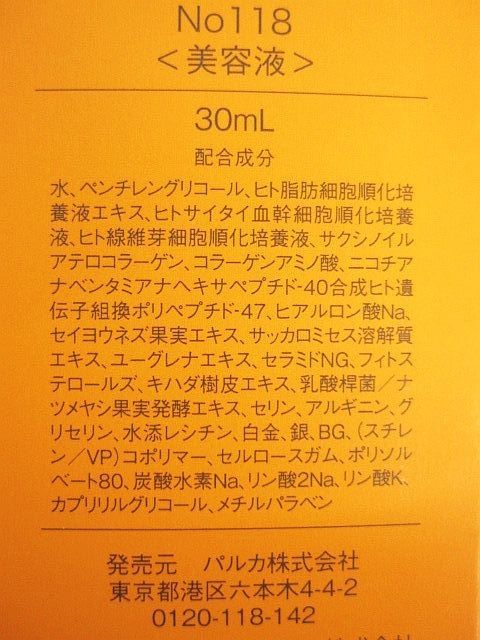 No118
＜美容液＞
30mL
配合成分
水、ペンチレングリコール、ヒト脂肪細胞順化培
養液エキス、ヒトサイタイ血幹細胞順化培養
液、ヒト線維芽細胞順化培養液、サクシノイル
アテロコラーゲン、コラーゲンアミノ酸、ニコチア
ナベンタミアナヘキサペプチド-40合成ヒト遺
伝子組換ポリペプチド-47、ヒアルロン酸Na、
セイヨウネズ果実エキス、サッカロミセス溶解質
エキス、ユーグレナエキス、セラミドNG、フィトス
テロールズ、キハダ樹皮エキス、乳酸桿菌／ナ
ツメヤシ果実発酵エキス、セリン、アルギニン、グ
リセリン、水添レシチン、白金、銀、BG、（スチレ
ン／VP）コポリマー、セルロースガム、ポリソル
ベート80、炭酸水素Na、リン酸2Na、リン酸K、
カプリリルグリコール、メチルパラベン
発売元　パルカ株式会社
東京都港区六本木4-4-2
0120-118-142